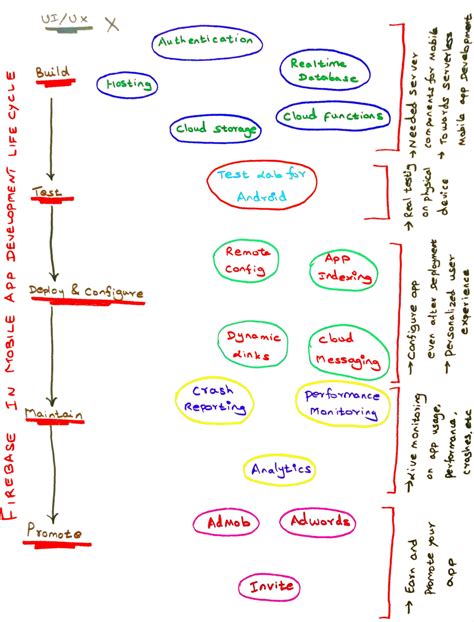 FIREBASE IN MOBILE APP DEVELOPMENT LIFE CYCLE
UI/UX X
Build
Authentication
Realtime
Database
Hosting
Cloud Functions
Cloud storage
→ Needed Server
components for Mobile
→ Towards serverless
Mobile app Development
Test
Test Lab for
Android
→ Real testig
on physical
device
Deploy & Configure
Remote
Config
App
Indexing
Dynamic
Links
Cloud
Messaging
→ Configure app
even after deployment
→ Personalized user
experience
Maintain
Crash
Reporting
Performance
Monitoring
Analytics
→ Live monitoring
on app usage,
performance,
crashes, etc
Promote
AdMob
Adwords
Invite
→ Earn and
Promote your
app